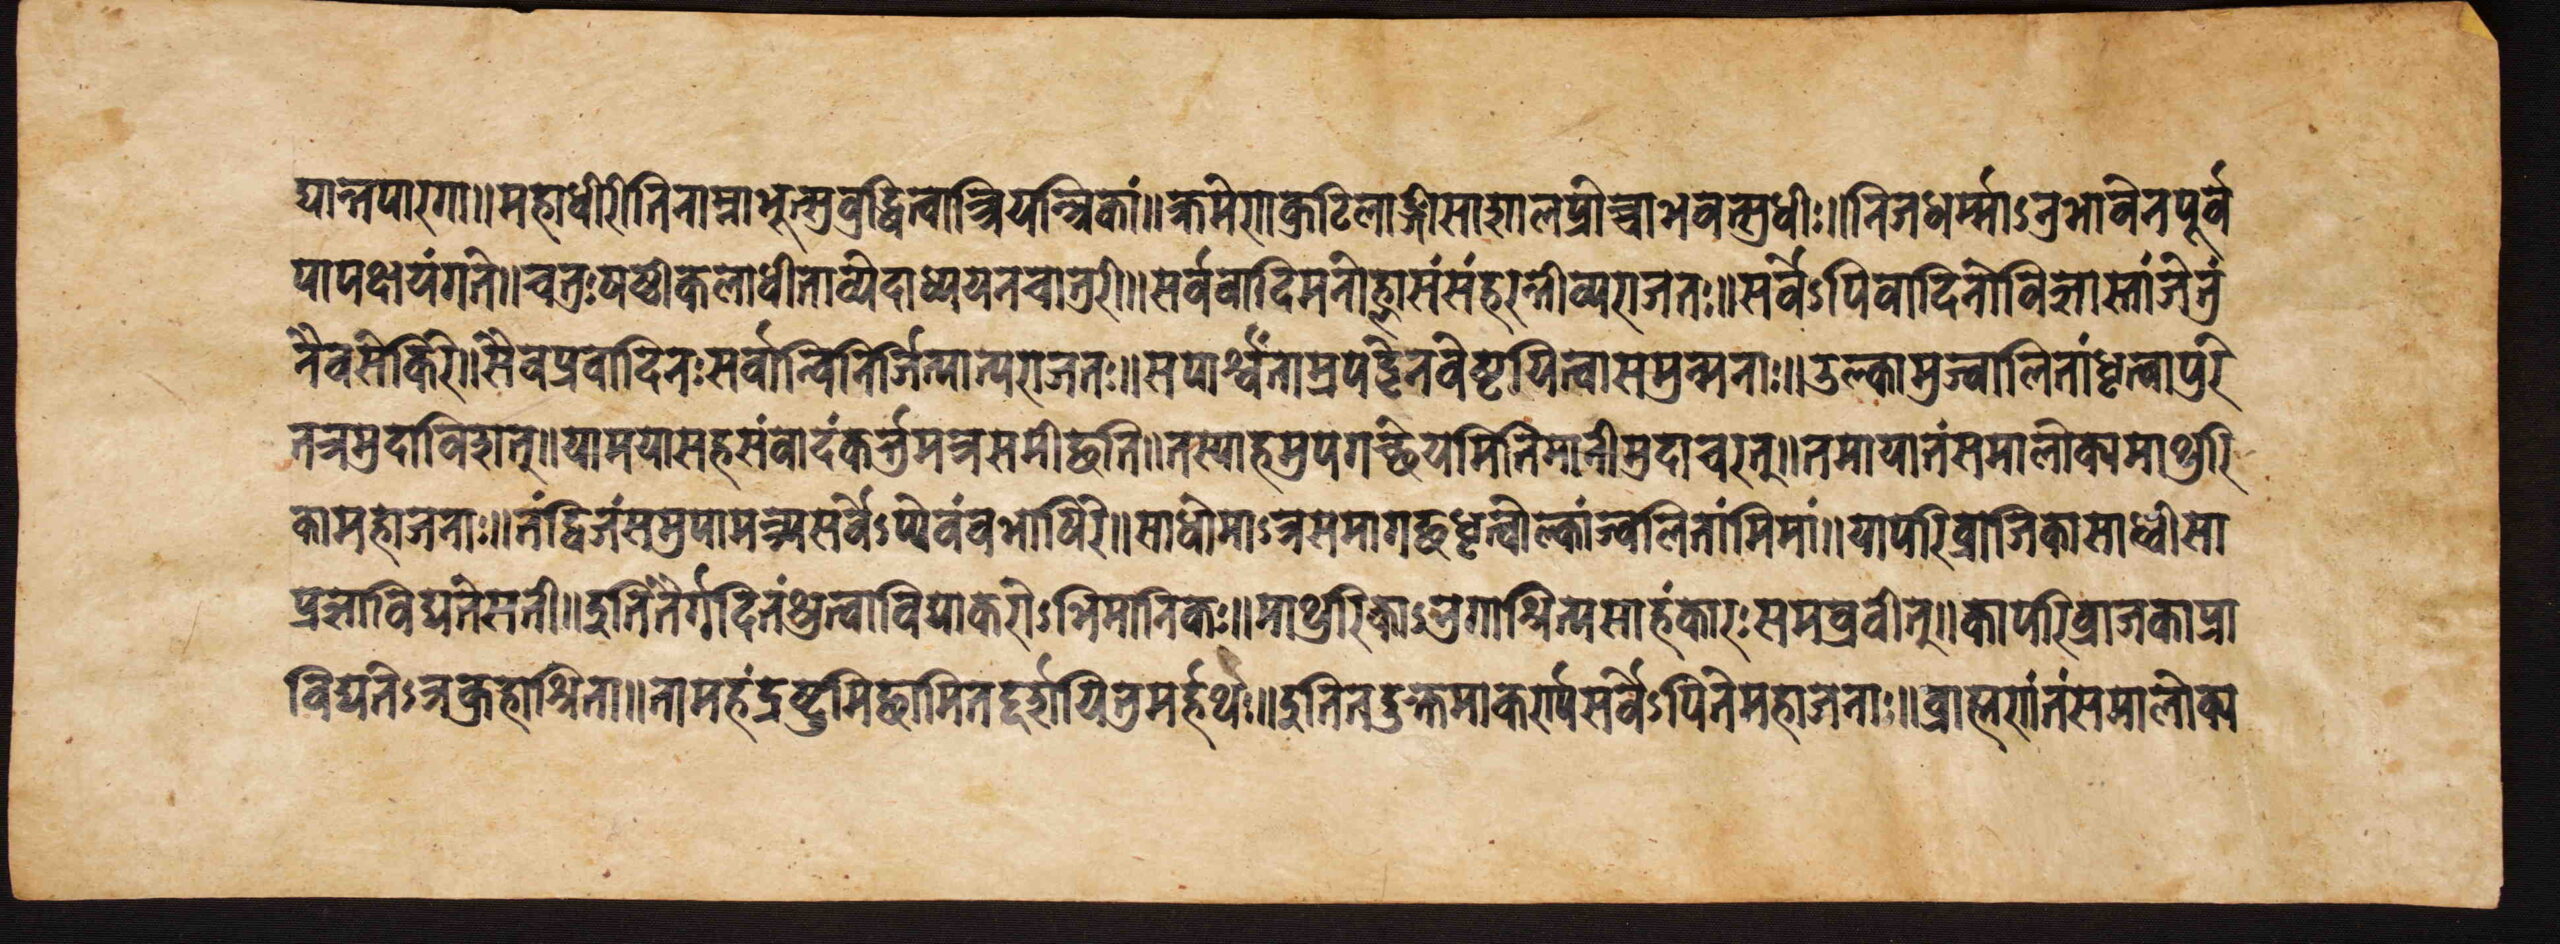 द्यान्तपारगा॥महाधीरीतिनाम्नाभूत्सुवुद्धित्वान्त्रियन्त्रिकां॥क्रमेणकुटिलाङ्गीसाशालप्रीच्चाभवत्सुधीः॥निजधर्म्माऽनुभावेनपूर्व
पापक्षयंगते॥चतुःषष्ठीकलाधीताव्येदाध्ययनचातुरी॥सर्ववादिमनोह्लासंसंहरन्तीव्यराजतः॥सर्वेऽपिवादिनोविज्ञास्तांजेतुं
नैवसेकिरे॥सैवप्रवादिनःसर्वान्विनिर्जित्यान्यराजतः॥सपार्श्वेनाम्रपट्टेनवेष्टयित्वासमुन्मनाः॥उल्कामुज्वालितांधृत्वापुरे
तत्रमुदाविशत्॥यामयासहसंवादंकर्त्तुमत्रसमीछति॥तस्याहमुपगच्छेयमितिमानीमुदाचरत्॥तमायातंसमालोक्यमाथुरि
कामहाजनाः॥तंद्विजंसमुपामन्त्र्यसर्वेऽप्येवंवभाषिरे॥साधोमाऽत्रसमागछधृत्वोल्कांज्वलितांमिमां॥यापरिव्राजिकासाध्वीसा
प्रज्ञाविद्यतेसती॥इतितैर्गदितंश्रुत्वाविद्याकरोऽभिमानिकः॥माथुरिकाऽनुगाश्रित्यसाहंकारःसमव्रवीत्॥कापरिव्राजकाप्रा
विद्यतेऽत्रकुहाश्रिता॥तामहंद्रष्टुमिछामितद्दर्शयितुमर्हथः॥इतितदुक्तमाकर्ण्यसर्वेऽपितेमहाजनाः॥व्राह्मणंतंसमालोक्य